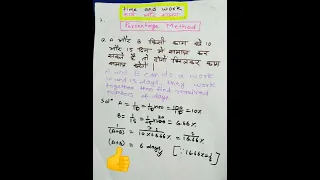 Time and work
समय और काम
Percentage Method
Q. A और B किसी काम को 10
और 15 दिन में समाप्त कर
सकते हैं तो दोनों मिलकर काम
समाप्त करेंगे।
A and B can do a work
in 10 and 15 days, they work
together then find required
numbers of days
Solⁿ A = 1/10 = 1/10 × 100 = 100/10 = 10%
B = 1/15 = 1/15 × 100 = 6.66%
1/(A+B) = 10 + 6.66% = 16.66%
(A+B) = 6 days [∵ 16.66% = 1/6]